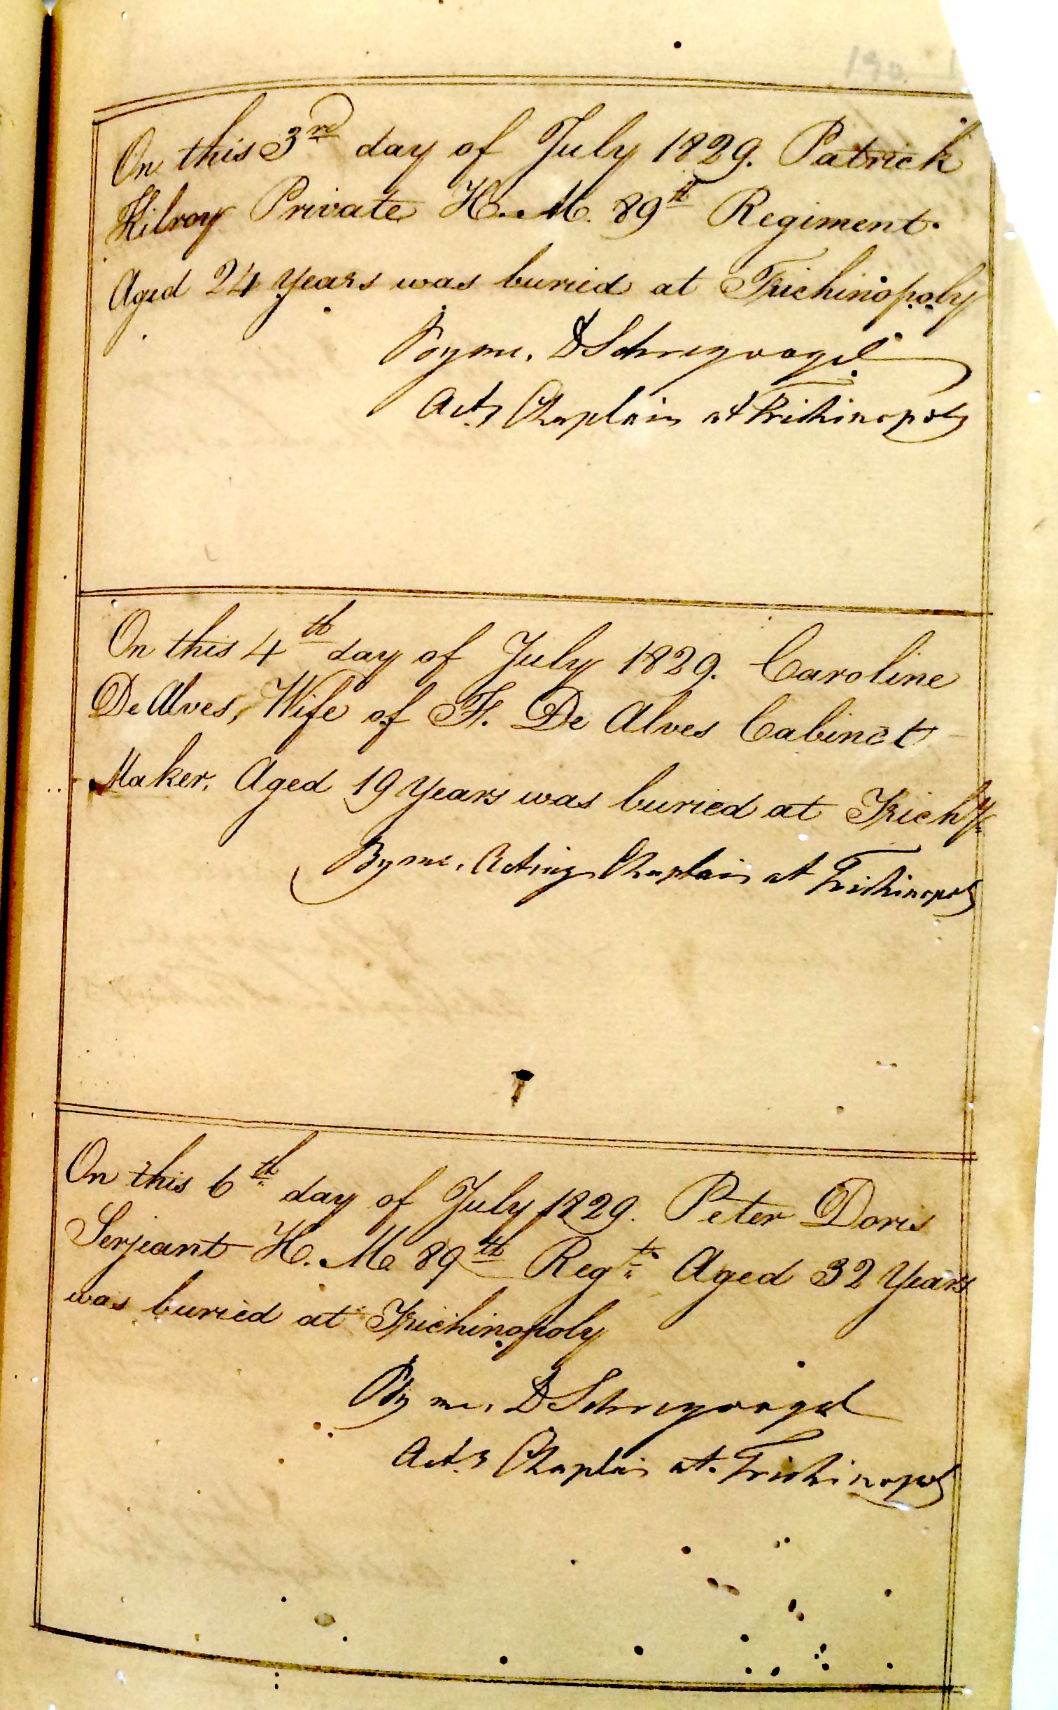 190.
On this 3rd day of July 1829. Patrick
Kilroy Private H. M. 89th Regiment.
Aged 24 Years was buried at Trichinopoly
By me, D Schreyvogel
Actg Chaplain at Trichinopoly
On this 4th day of July 1829. Caroline
De Alves, Wife of F. De Alves Cabinet
Maker. Aged 19 Years was buried at Trichy
By me, Acting Chaplain at Trichinopoly
On this 6th day of July 1829. Peter Doris
Serjeant H. M. 89th Regt. Aged 32 Years
was buried at Trichinopoly
By me, D Schreyvogel
Actg Chaplain at Trichinopoly